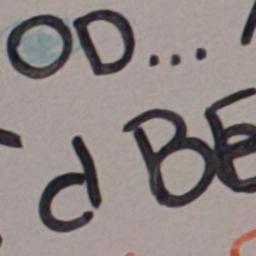 OD...
d BE